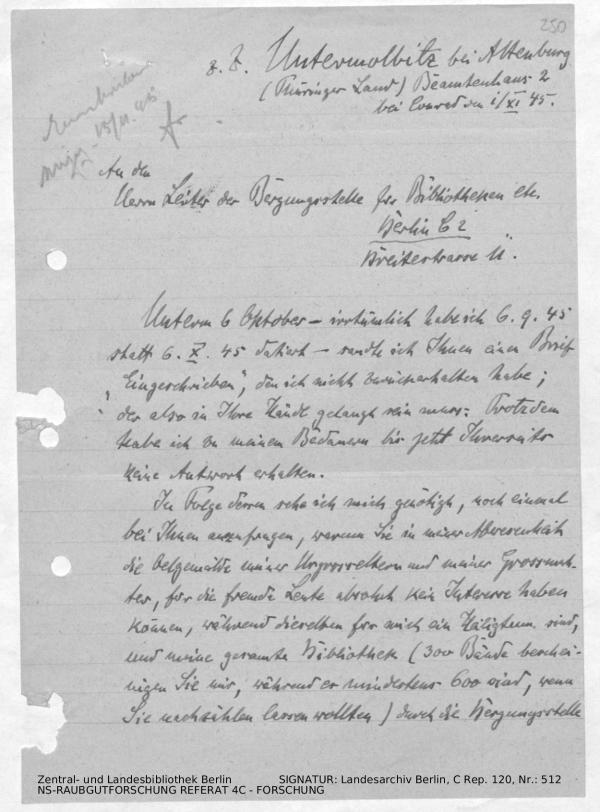 250
z. Z. Untermolbitz bei Altenburg
(Thüringer Land) Beamtenhaus 2
bei Conrad den 1/XI 45.
15/11. 45
An den
Herrn Leiter der Bergungsstelle für Bibliotheken etc.
Berlin C 2
Breitestrasse 11.
Unterm 6 Oktober – irrtümlich habe ich 6. 9. 45
statt 6. X. 45 datiert – sandte ich Ihnen einen Brief
„Eingeschrieben", den ich nicht zurückerhalten habe;
der also in Ihre Hände gelangt sein muss. Trotzdem
habe ich zu meinem Bedauern bis jetzt Ihrerseits
keine Antwort erhalten.
In Folge dessen sehe ich mich genötigt, noch einmal
bei Ihnen anzufragen, warum Sie in meiner Abwesenheit
die Oelgemälde meiner Urgrosseltern und meiner Grossmut-
ter, für die fremde Leute absolut kein Interesse haben
können, während dieselben für mich ein Heiligtum sind,
und meine gesamte Bibliothek (300 Bände beschei-
nigen Sie mir, während er mindestens 600 sind, wenn
Sie nachzählen lassen wollten) durch die Bergungsstelle
Zentral- und Landesbibliothek Berlin SIGNATUR: Landesarchiv Berlin, C Rep. 120, Nr.: 512
NS-RAUBGUTFORSCHUNG REFERAT 4C - FORSCHUNG